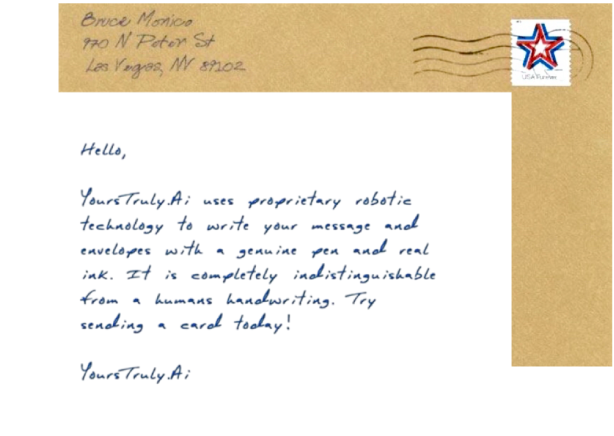 Bruce Monico
970 N Peter St
Las Vegas, NV 89102
USA Forever
Hello,
YoursTruly.Ai uses proprietary robotic
technology to write your message and
envelopes with a genuine pen and real
ink. It is completely indistinguishable
from a humans handwriting. Try
sending a card today!
YoursTruly.Ai